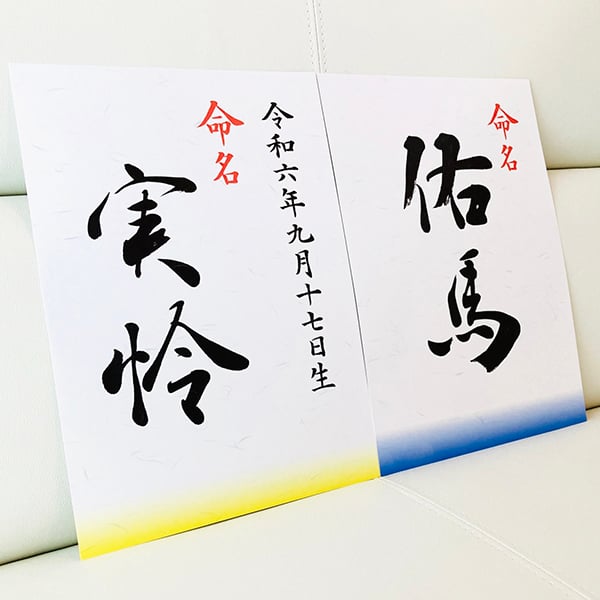 命名
佑馬
令和六年九月十七日生
命名
実怜